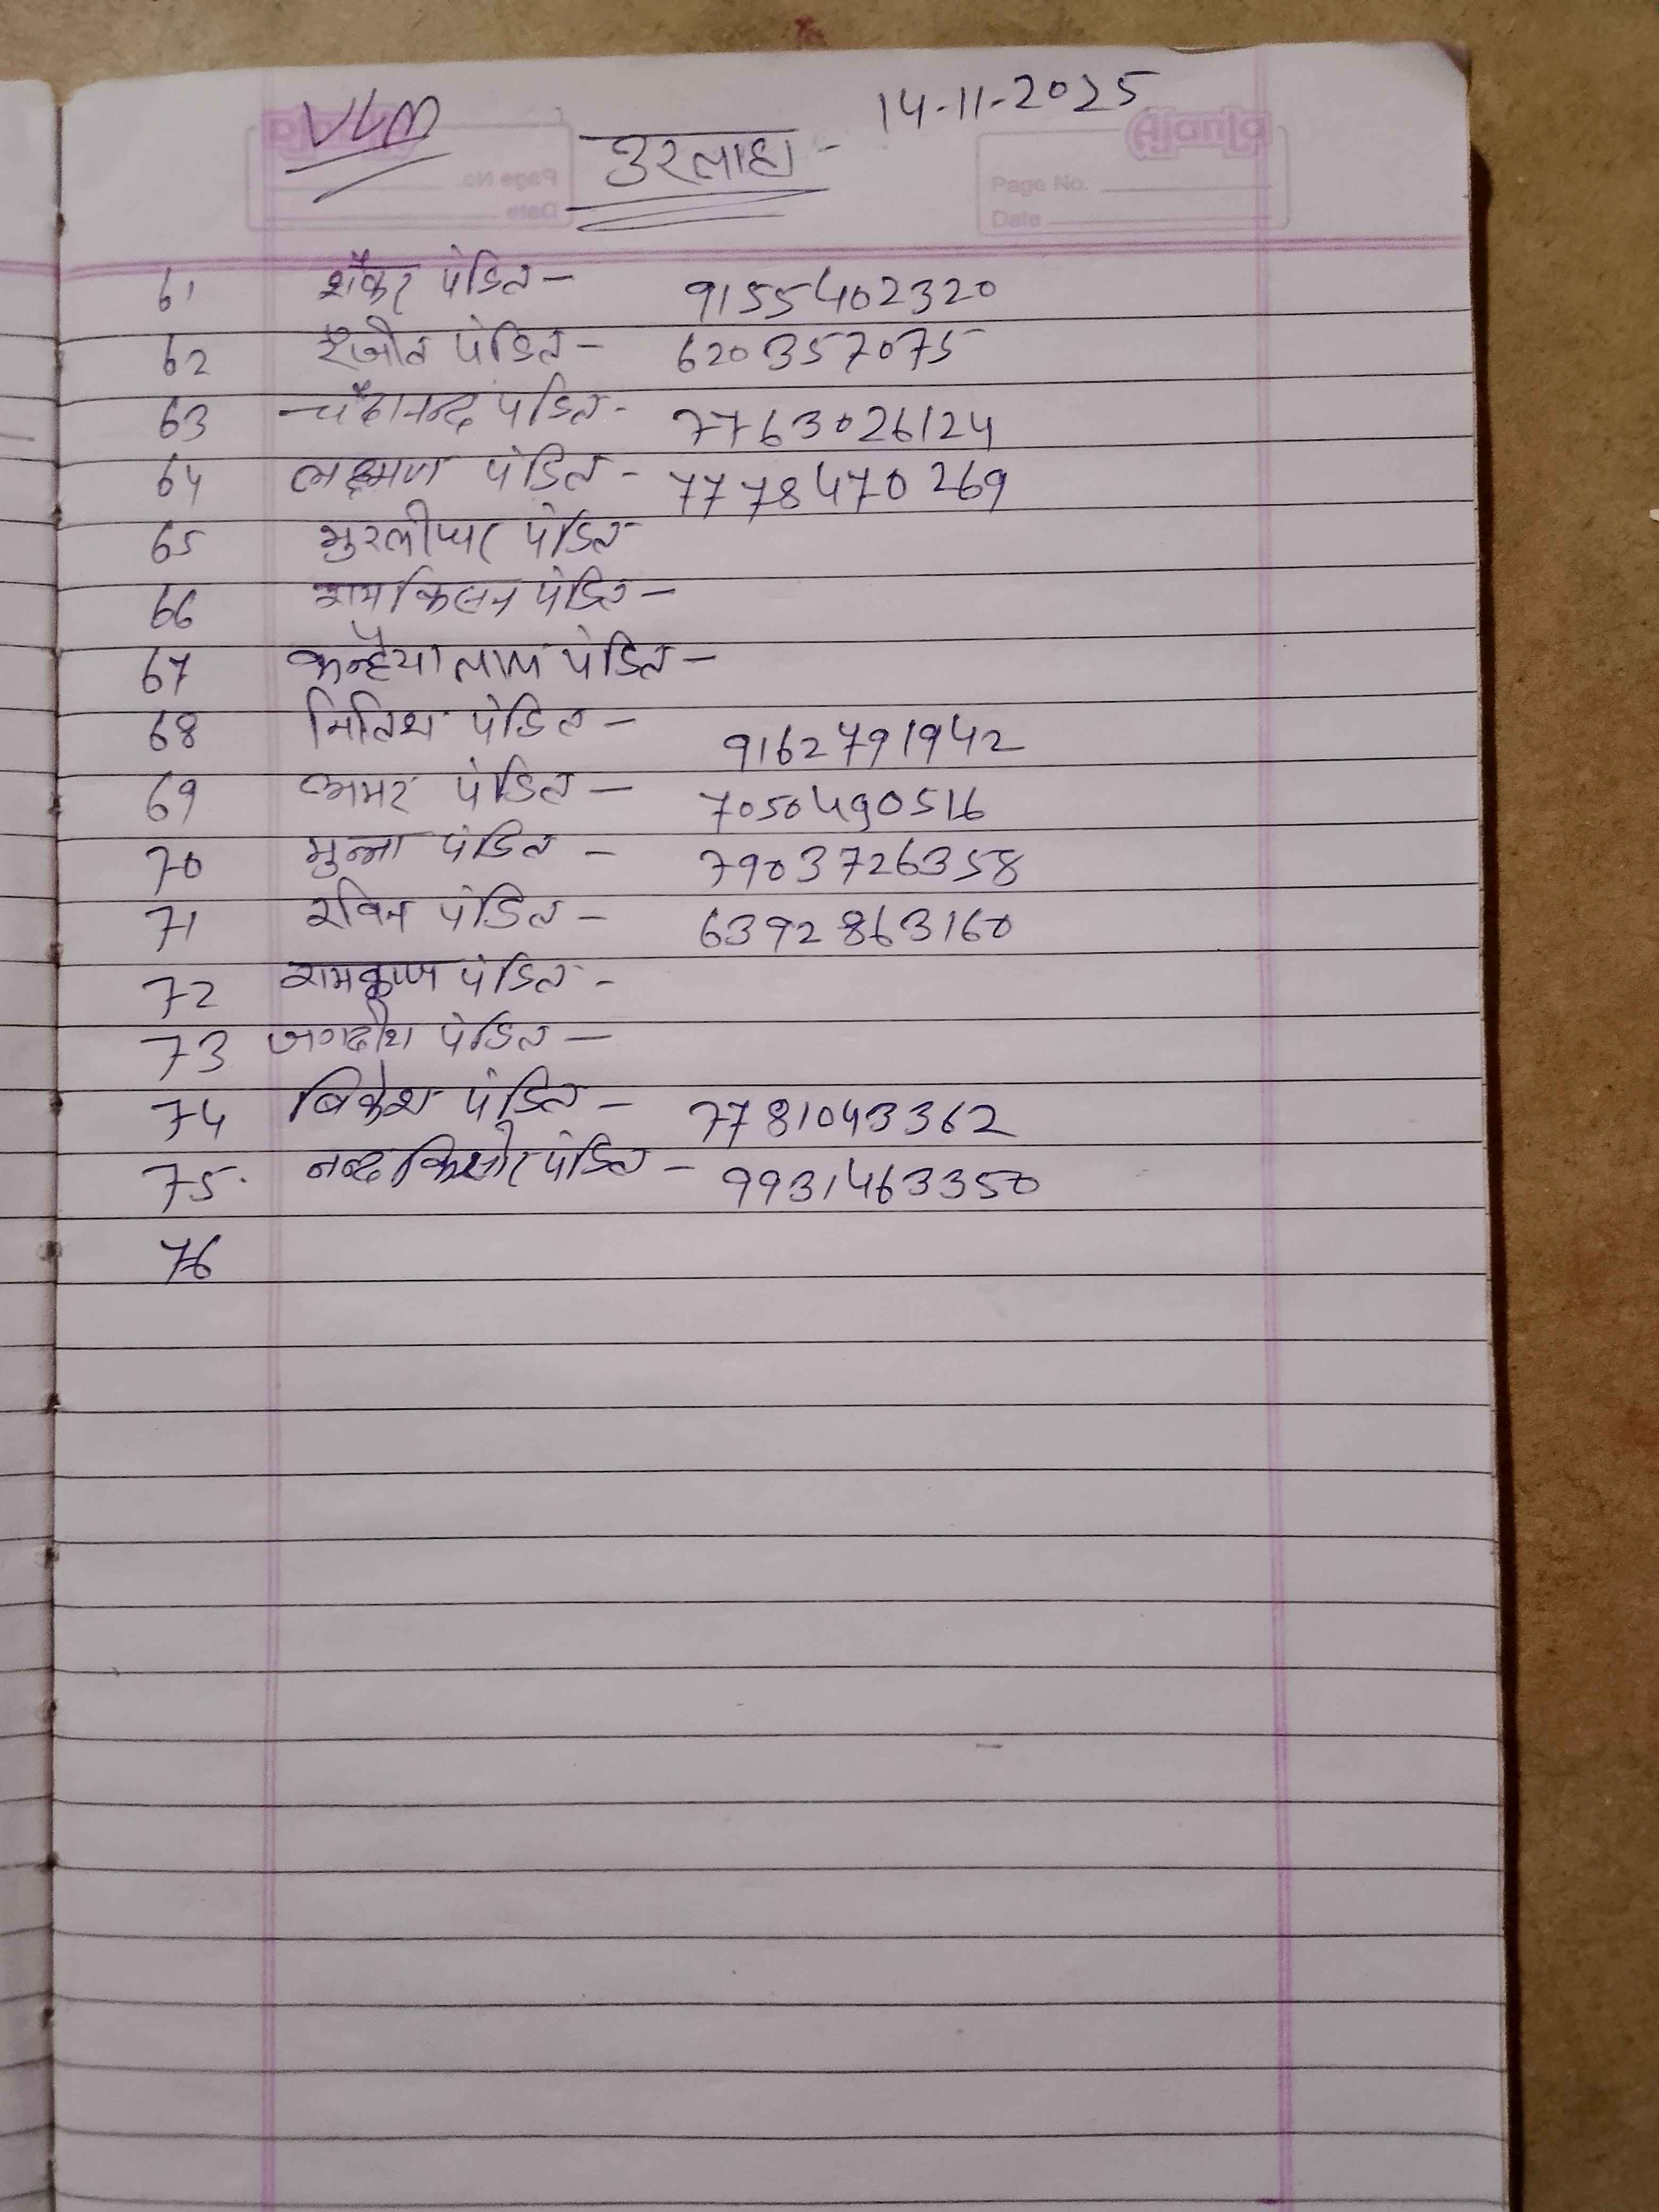 VLM
14-11-2025
उरलाहा -
Ajanta
Page No.
Date
61 शंकर पंडित - 9155402320
62 रंजीत पंडित - 620357075
63 चंदानन्द पंडित - 7763026124
64 लक्ष्मण पंडित - 7778470269
65 मुरलीधर पंडित
66 रामकिसन पंडित -
67 कन्हैया लाल पंडित -
68 मितिश पंडित - 9162791942
69 अमर पंडित - 7050490516
70 मुन्ना पंडित - 7903726358
71 रविन पंडित - 6392863160
72 रामकृष्ण पंडित -
73 जगदीश पंडित -
74 बिकेश पंडित - 7781043362
75. नन्द किशोर पंडित - 9931463350
76